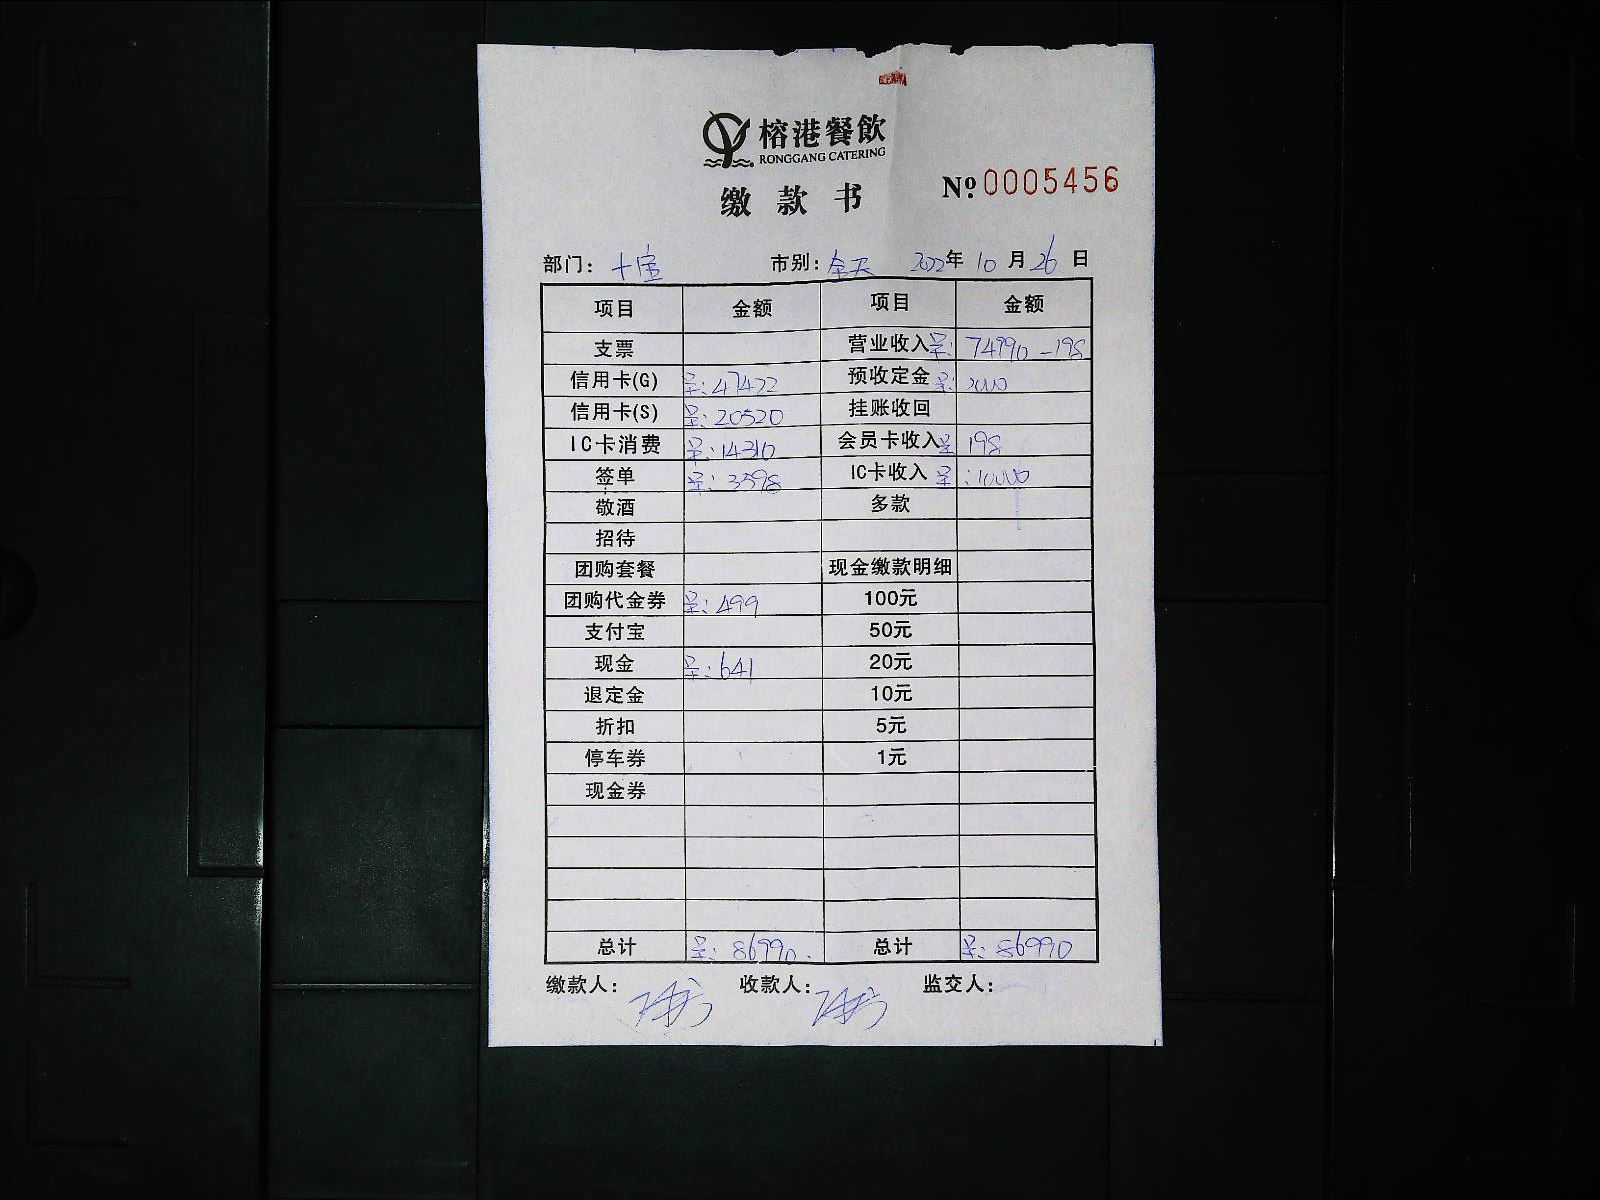 榕港餐飲
RONGGANG CATERING
缴款书
№ 0005456
部门: 十宝 市别: 全天 2022年 10月 26日
项目 金额 项目 金额
支票 营业收入 呈: 74990-198
信用卡(G) 呈: 47422 预收定金 呈: 2000
信用卡(S) 呈: 20520 挂账收回
IC卡消费 呈: 14310 会员卡收入 呈 198
签单 呈: 3598 IC卡收入 呈: 10000
敬酒 多款
招待
团购套餐 现金缴款明细
团购代金券 呈: 499 100元
支付宝 50元
现金 呈: 641 20元
退定金 10元
折扣 5元
停车券 1元
现金券
总计 呈: 86990. 总计 呈: 86990
缴款人: 收款人: 监交人: